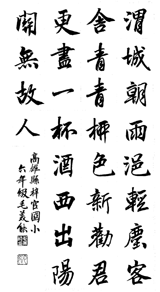 渭城朝雨浥輕塵客
舍青青柳色新勸君
更盡一杯酒西出陽
關無故人
高雄縣梓官國小
六年級毛